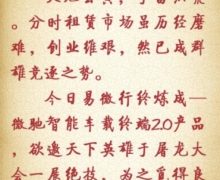 。分时租赁市场虽历经磨
难，创业维艰，然已成群
雄竞逐之势。
今日易微行终炼成—
微驰智能车载终端2.0产品
，欲邀天下英雄于屠龙大